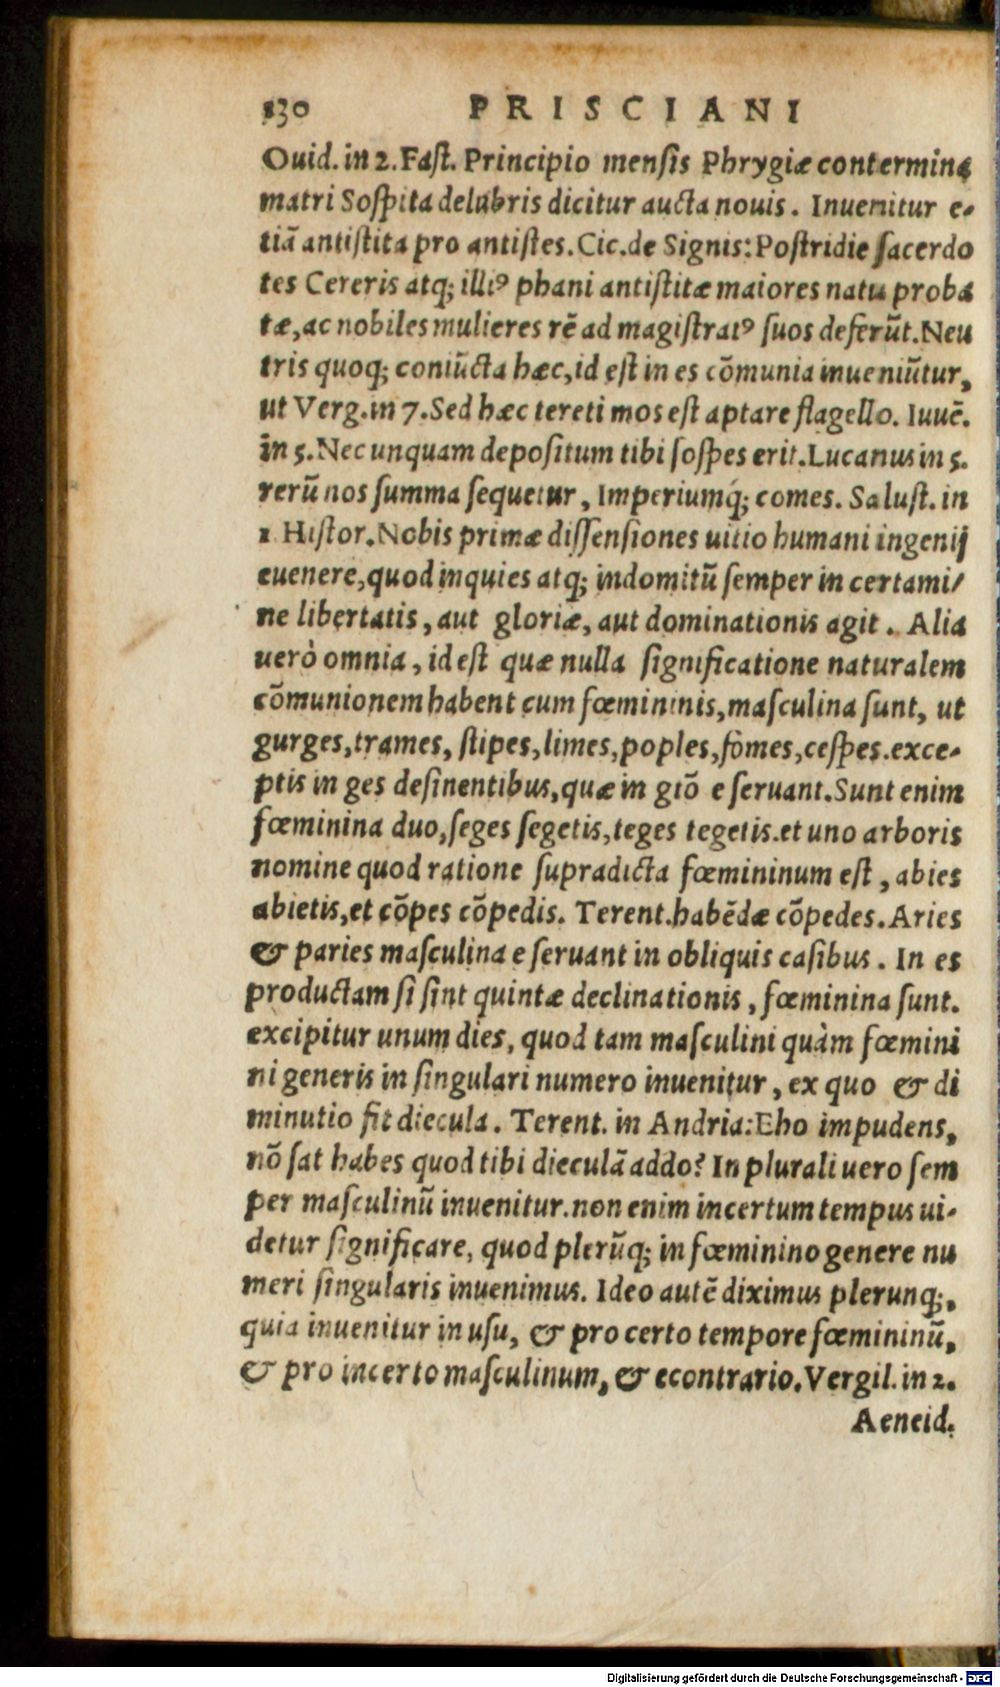 130 PRISCIANI
Ouid. in 2. Fast. Principio mensis Phrygiæ contermina
matri Sospita delubris dicitur aucta nouis. Inuenitur e-
tiā antistita pro antistes. Cic. de Signis: Postridie sacerdo
tes Cereris atq; illiꝰ phani antistitæ maiores natu proba
tæ, ac nobiles mulieres rē ad magistratꝰ suos deferūt. Neu
tris quoq; coniūcta hæc, id est in es cōmunia inueniūtur,
ut Verg. in 7. Sed hæc tereti mos est aptare flagello. Iuuē.
in 5. Nec unquam depositum tibi sospes erit. Lucanus in 5.
rerū nos summa sequetur, Imperiumq́; comes. Salust. in
1 Histor. Nobis primæ dissensiones uitio humani ingenij
euenere, quod inquies atq; indomitū semper in certami/
ne libertatis, aut gloriæ, aut dominationis agit. Alia
uerò omnia, id est quæ nulla significatione naturalem
cōmunionem habent cum fœmininis, masculina sunt, ut
gurges, trames, stipes, limes, poples, fomes, cespes. exce-
ptis in ges desinentibus, quæ in gtō e seruant. Sunt enim
fœminina duo, seges segetis, teges tegetis. et uno arboris
nomine quod ratione supradicta fœmininum est, abies
abietis, et cōpes cōpedis. Terent. habēdæ cōpedes. Aries
& paries masculina e seruant in obliquis casibus. In es
productam si sint quintæ declinationis, fœminina sunt.
excipitur unum dies, quod tam masculini quàm fœmini
ni generis in singulari numero inuenitur, ex quo & di
minutio fit diecula. Terent. in Andria: Eho impudens,
nō sat habes quod tibi dieculā addo? In plurali uero sem
per masculinū inuenitur. non enim incertum tempus ui-
detur significare, quod plerūq; in fœminino genere nu
meri singularis inuenimus. Ideo autē diximus plerunq;,
quia inuenitur in usu, & pro certo tempore fœmininū,
& pro incerto masculinum, & econtrario. Vergil. in 2.
Aeneid.
Digitalisierung gefördert durch die Deutsche Forschungsgemeinschaft - DFG